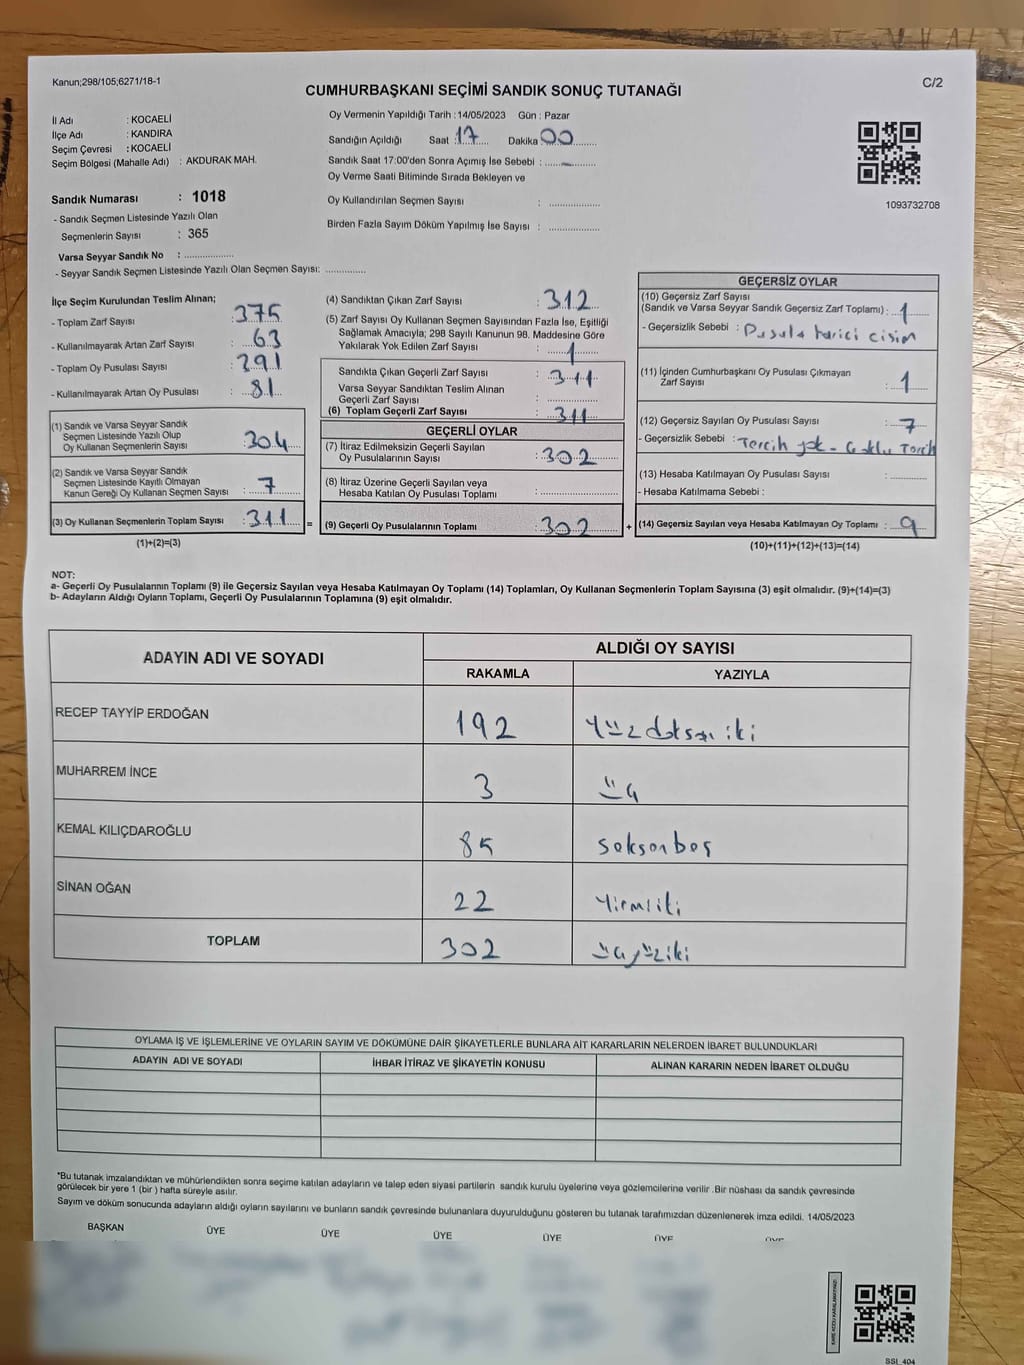 Kanun;298/105;6271/18-1
C/2
CUMHURBAŞKANI SEÇİMİ SANDIK SONUÇ TUTANAĞI
İl Adı : KOCAELİ
İlçe Adı : KANDIRA
Seçim Çevresi : KOCAELİ
Seçim Bölgesi (Mahalle Adı) : AKDURAK MAH.
Oy Vermenin Yapıldığı Tarih : 14/05/2023 Gün : Pazar
Sandığın Açıldığı Saat 17 Dakika 00
Sandık Saat 17:00'den Sonra Açımış İse Sebebi : -
Oy Verme Saati Bitiminde Sırada Bekleyen ve
Oy Kullandırılan Seçmen Sayısı :
Birden Fazla Sayım Döküm Yapılmış İse Sayısı :
1093732708
Sandık Numarası : 1018
- Sandık Seçmen Listesinde Yazılı Olan
Seçmenlerin Sayısı : 365
Varsa Seyyar Sandık No :
- Seyyar Sandık Seçmen Listesinde Yazılı Olan Seçmen Sayısı:
İlçe Seçim Kurulundan Teslim Alınan;
- Toplam Zarf Sayısı : 375
- Kullanılmayarak Artan Zarf Sayısı : 63
- Toplam Oy Pusulası Sayısı : 391
- Kullanılmayarak Artan Oy Pusulası : 81
(1) Sandık ve Varsa Seyyar Sandık
Seçmen Listesinde Yazılı Olup
Oy Kullanan Seçmenlerin Sayısı : 304
(2) Sandık ve Varsa Seyyar Sandık
Seçmen Listesinde Kayıtlı Olmayan
Kanun Gereği Oy Kullanan Seçmen Sayısı : 7
(3) Oy Kullanan Seçmenlerin Toplam Sayısı : 311 =
(1)+(2)=(3)
(4) Sandıktan Çıkan Zarf Sayısı : 312
(5) Zarf Sayısı Oy Kullanan Seçmen Sayısından Fazla İse, Eşitliği
Sağlamak Amacıyla; 298 Sayılı Kanunun 98. Maddesine Göre
Yakılarak Yok Edilen Zarf Sayısı : 1
Sandıkta Çıkan Geçerli Zarf Sayısı : 311
Varsa Seyyar Sandıktan Teslim Alınan
Geçerli Zarf Sayısı :
(6) Toplam Geçerli Zarf Sayısı : 311
GEÇERLİ OYLAR
(7) İtiraz Edilmeksizin Geçerli Sayılan
Oy Pusulalarının Sayısı : 302
(8) İtiraz Üzerine Geçerli Sayılan veya
Hesaba Katılan Oy Pusulası Toplamı :
(9) Geçerli Oy Pusulalarının Toplamı : 302 +
GEÇERSİZ OYLAR
(10) Geçersiz Zarf Sayısı
(Sandık ve Varsa Seyyar Sandık Geçersiz Zarf Toplamı) : 1
- Geçersizlik Sebebi : Pusula harici cisim
(11) İçinden Cumhurbaşkanı Oy Pusulası Çıkmayan
Zarf Sayısı : 1
(12) Geçersiz Sayılan Oy Pusulası Sayısı : 7
- Geçersizlik Sebebi : Tercih yok - Çoklu Tercih
(13) Hesaba Katılmayan Oy Pusulası Sayısı :
- Hesaba Katılmama Sebebi :
(14) Geçersiz Sayılan veya Hesaba Katılmayan Oy Toplamı : 9
(10)+(11)+(12)+(13)=(14)
NOT:
a- Geçerli Oy Pusulalarının Toplamı (9) ile Geçersiz Sayılan veya Hesaba Katılmayan Oy Toplamı (14) Toplamları, Oy Kullanan Seçmenlerin Toplam Sayısına (3) eşit olmalıdır. (9)+(14)=(3)
b- Adayların Aldığı Oyların Toplamı, Geçerli Oy Pusulalarının Toplamına (9) eşit olmalıdır.
ADAYIN ADI VE SOYADI
ALDIĞI OY SAYISI
RAKAMLA YAZIYLA
RECEP TAYYİP ERDOĞAN 192 Yüzdoksan iki
MUHARREM İNCE 3 üç
KEMAL KILIÇDAROĞLU 85 seksenbeş
SİNAN OĞAN 22 Yirmiiki
TOPLAM 302 üçyüziki
OYLAMA İŞ VE İŞLEMLERİNE VE OYLARIN SAYIM VE DÖKÜMÜNE DAİR ŞİKAYETLERLE BUNLARA AİT KARARLARIN NELERDEN İBARET BULUNDUKLARI
ADAYIN ADI VE SOYADI İHBAR İTİRAZ VE ŞİKAYETİN KONUSU ALINAN KARARIN NEDEN İBARET OLDUĞU
*Bu tutanak imzalandıktan ve mühürlendikten sonra seçime katılan adayların ve talep eden siyasi partilerin sandık kurulu üyelerine veya gözlemcilerine verilir .Bir nüshası da sandık çevresinde
görülecek bir yere 1 (bir ) hafta süreyle asılır.
Sayım ve döküm sonucunda adayların aldığı oyların sayılarını ve bunların sandık çevresinde bulunanlara duyurulduğunu gösteren bu tutanak tarafımızdan düzenlenerek imza edildi. 14/05/2023
BAŞKAN ÜYE ÜYE ÜYE ÜYE ÜYE ÜYE
SSI_404